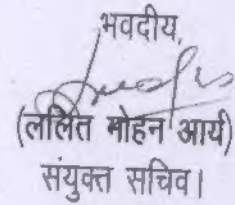 भवदीय,
(ललित मोहन आर्य)
संयुक्त सचिव।